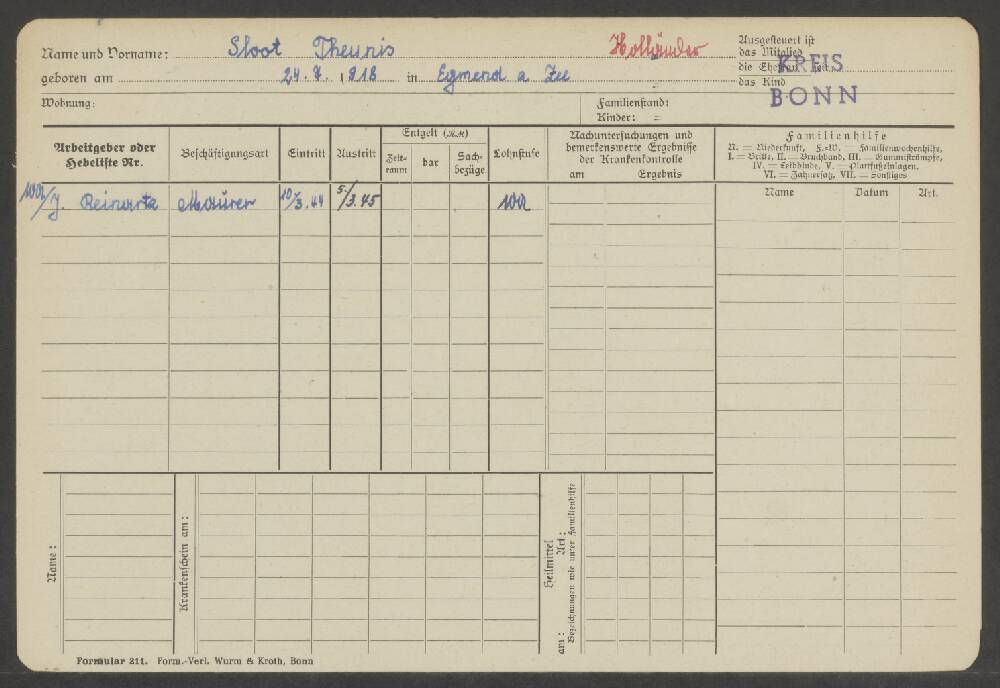 Name und Vorname: Sloot Theunis Holländer
geboren am 24.7.1918 in Egmend a Zee
Wohnung:
Familienstand:
Kinder: =
Ausgesteuert ist
das Mitglied
die Ehefrau seit
das Kind
KREIS
BONN
Arbeitgeber oder Hebeliste Nr.
Beschäftigungsart
Eintritt
Austritt
Entgelt (RM)
Zeitraum
bar
Sachbezüge
Lohnstufe
Nachuntersuchungen und
bemerkenswerte Ergebnisse
der Krankenkontrolle
am Ergebnis
Familienhilfe
N. = Niederkunft, F.-W. = Familienwochenhilfe,
I. = Brille, II. = Bruchband, III. = Gummistrümpfe,
IV. = Leibbinde, V. = Plattfußeinlagen,
VI. = Zahnersatz, VII. = Sonstiges
Name Datum Art.
J. Reinartz Maurer 10/3.44 5./3.45 100
Name:
Krankenschein am:
Heilmittel
am: Art:
Bezeichnungen wie unter Familienhilfe
Formular 211. Form.-Verl. Wurm & Kroth, Bonn